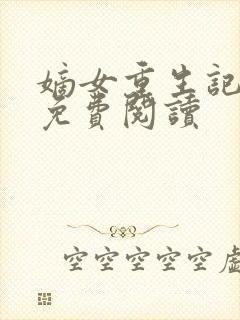 嫡女重生記
免費閱讀
空空空空空虛